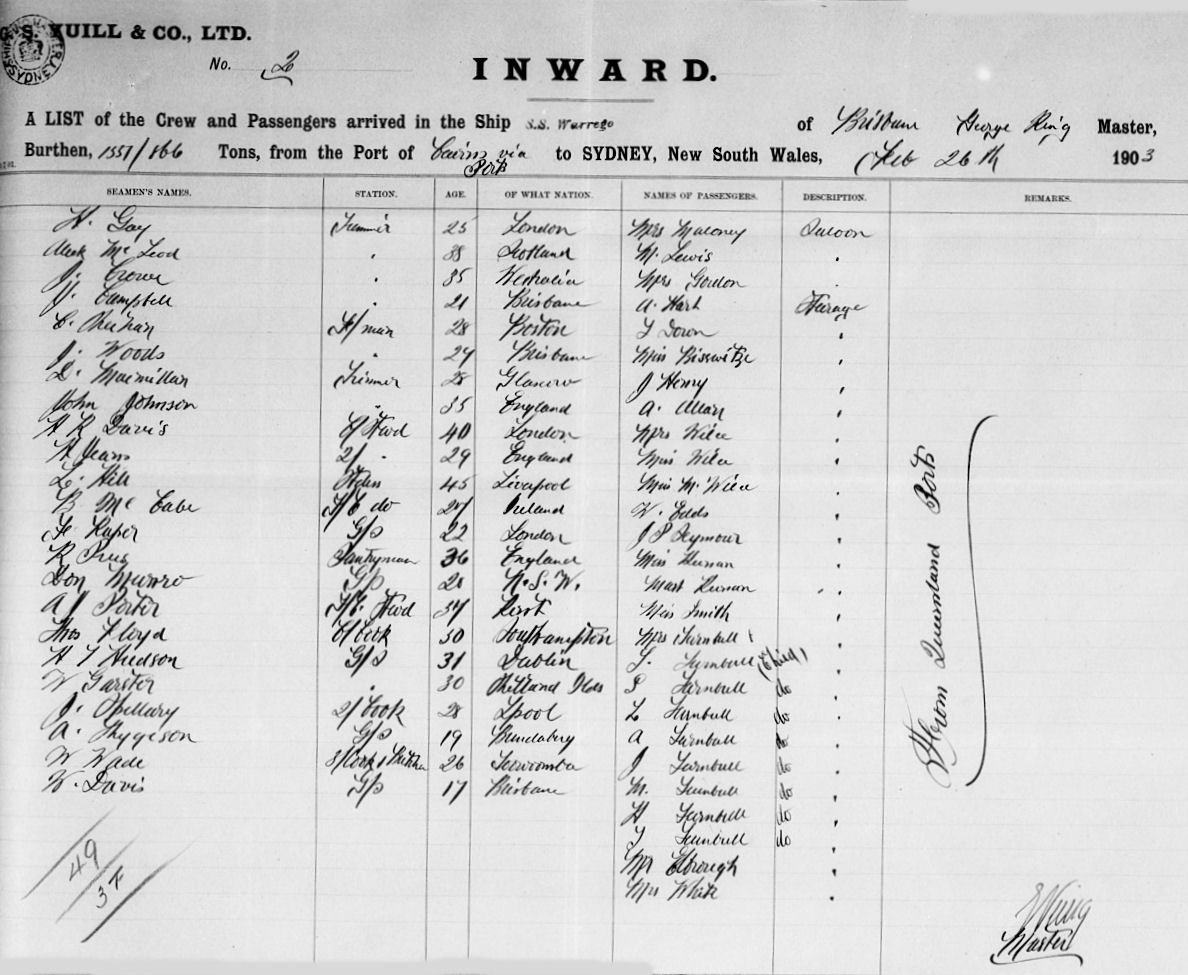 G. S. YUILL & CO., LTD.
No. 2
INWARD.
A LIST of the Crew and Passengers arrived in the Ship S.S. Warrego of Brisbane George King Master,
Burthen, 1551/866 Tons, from the Port of Cairns via Ports to SYDNEY, New South Wales, Feb 26th 1903
SEAMEN'S NAMES. STATION. AGE. OF WHAT NATION. NAMES OF PASSENGERS. DESCRIPTION. REMARKS.
H. Gay Trimmer 25 London Mrs Maloney Saloon
Alex Mc Leod 38 Scotland M. Lewis
J. Crowe 35 Mrs Gordon
J. Campbell 21 Brisbane A. Hart Steerage
C. Sheehan F/man 28 Boston Down
J. Woods 24 Brisbane Miss
D. Macmillan Trimmer 28 Glascow J Henry
John Johnson 35 England A. Allan
H R Davis C/Stwd 40 London Mrs Wilce
H Jeans 2/ . 29 England Miss Wilce
L. Hill Stdess 45 Liverpool Miss M. Wilce
B Mc Cabe F/C do 27 Ireland W. Edds
G/S 22 London J P Seymour
R Pantryman 36 England Miss
Don Munro G/S 28 N.S.W. Mast
A J Porter F/C Stwd 37 Miss Smith
Thos Floyd C/Cook 50 Southampton Mrs Turnbull
H T Hudson G/S 31 Dublin S. Turnbull (Child)
W Garster . 30 Shetland Isles P Turnbull do
J. Spillary 2/Cook 28 L'pool L Turnbull do
A. Thygeson G/S 19 Bundaberg A Turnbull do
W Wade 3/Cook & Butcher 26 Toowoomba J Turnbull do
W. Davis G/S 17 Brisbane M. Turnbull do
H Turnbull do
T Turnbull do
Mr Elbrough
Mrs White
From Queensland Ports
49
34
G King
Master